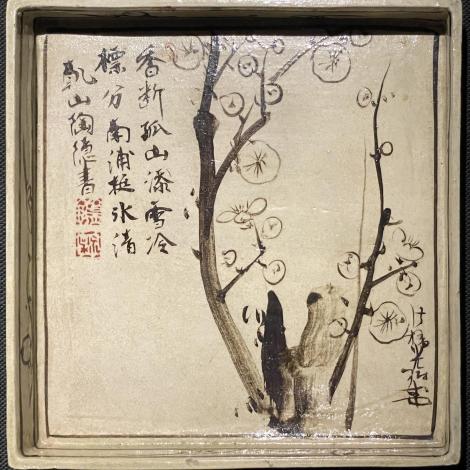 香断孤山添雪冷
標分南浦挺氷清
乾山陶隠書
法橋光琳画